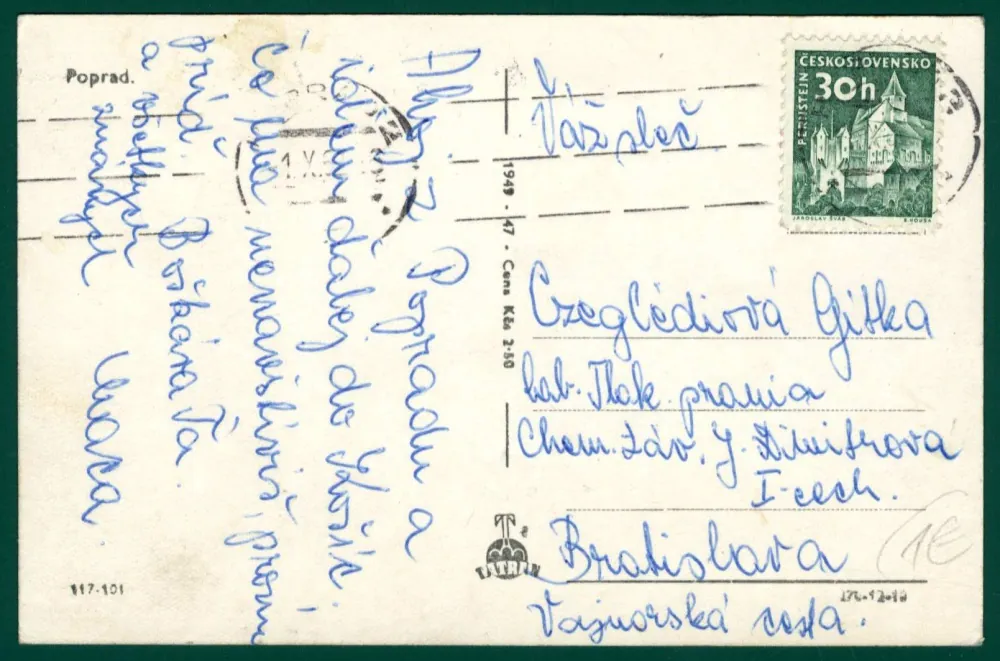 Poprad.
Ahoj z Popradu a
idem ďalej do Košíc.
Čo ma nenavštíviš, prosím
príď. Boškáva Ťa
a všetkých
známych
117-101
1949 - 47 - Cena Kčs 2·50
TATRAN
ČESKOSLOVENSKO
30h
PERNŠTEJN
JAROSLAV ŠVÁB
Váž. sleč.
Czeglédiová Gitka
lab. Tlak. prania
Chem. záv. J. Dimitrová
I-cech.
Bratislava
Vajnorská cesta.
1€